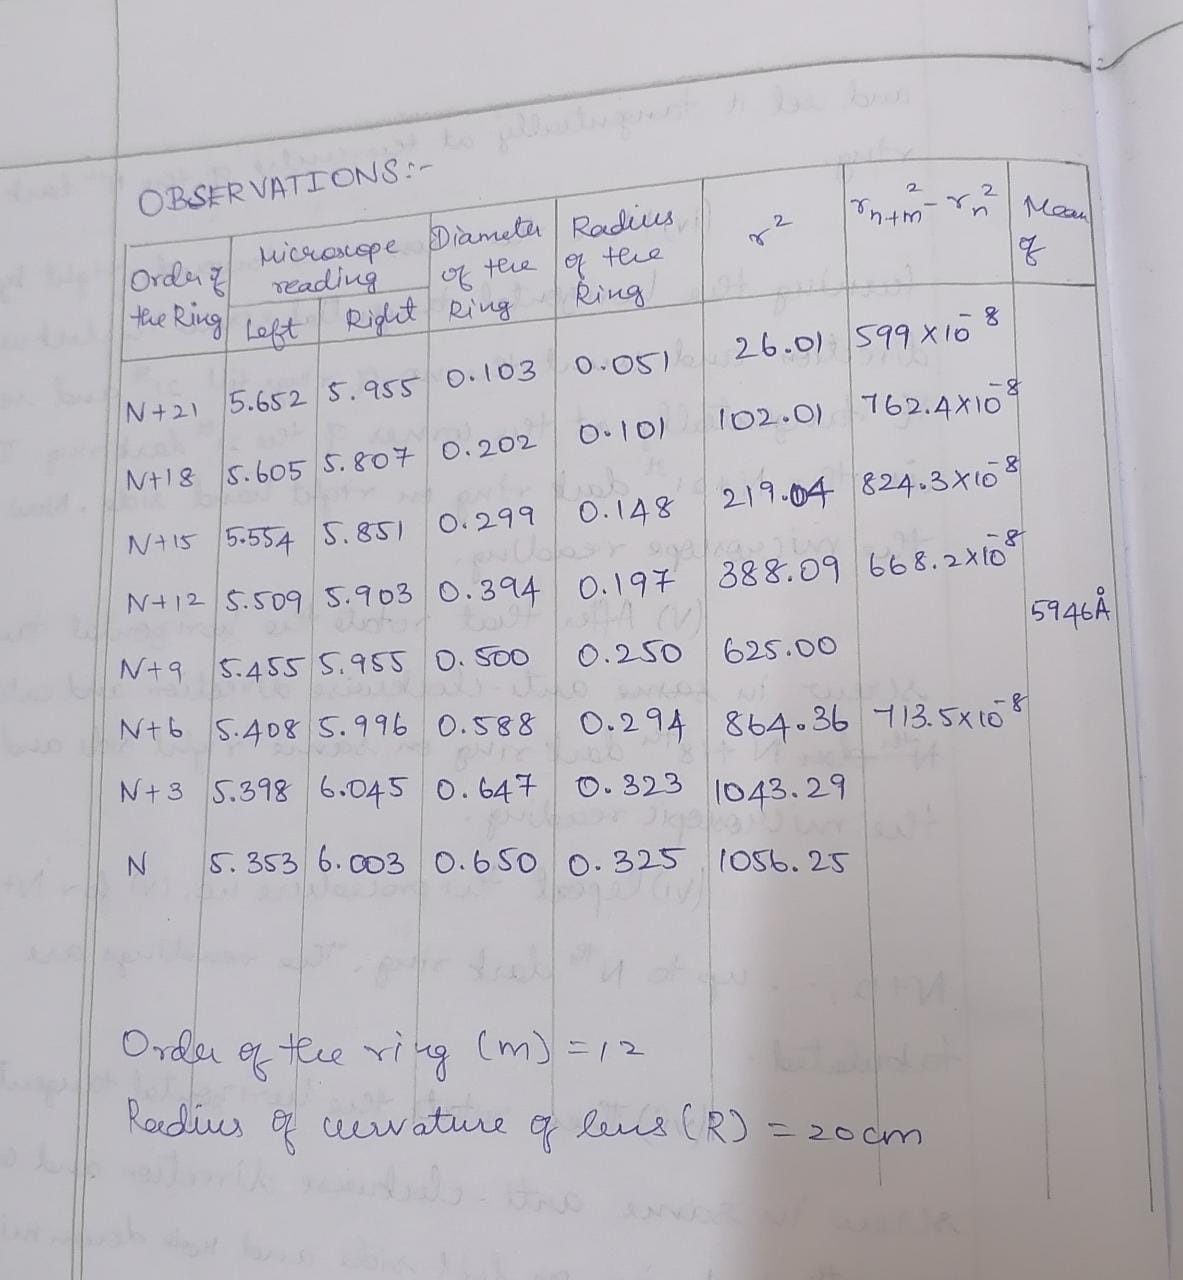 OBSERVATIONS:-
Order of the Ring | Microscope reading Left | Right | Diameter of the Ring | Radius of the Ring | r² | r²n+m - r²n | Mean of
N+21 5.652 5.955 0.103 0.051 26.01 599 x 10⁻⁸
N+18 5.605 5.807 0.202 0.101 102.01 762.4x10⁻⁸
N+15 5.554 5.851 0.299 0.148 219.04 824.3x10⁻⁸
N+12 5.509 5.903 0.394 0.197 388.09 668.2x10⁻⁸
5946Å
N+9 5.455 5.955 0.500 0.250 625.00
N+6 5.408 5.996 0.588 0.294 864.36 713.5x10⁻⁸
N+3 5.398 6.045 0.647 0.323 1043.29
N 5.353 6.003 0.650 0.325 1056.25
Order of the ring (m) = 12
Radius of curvature of lens (R) = 20cm